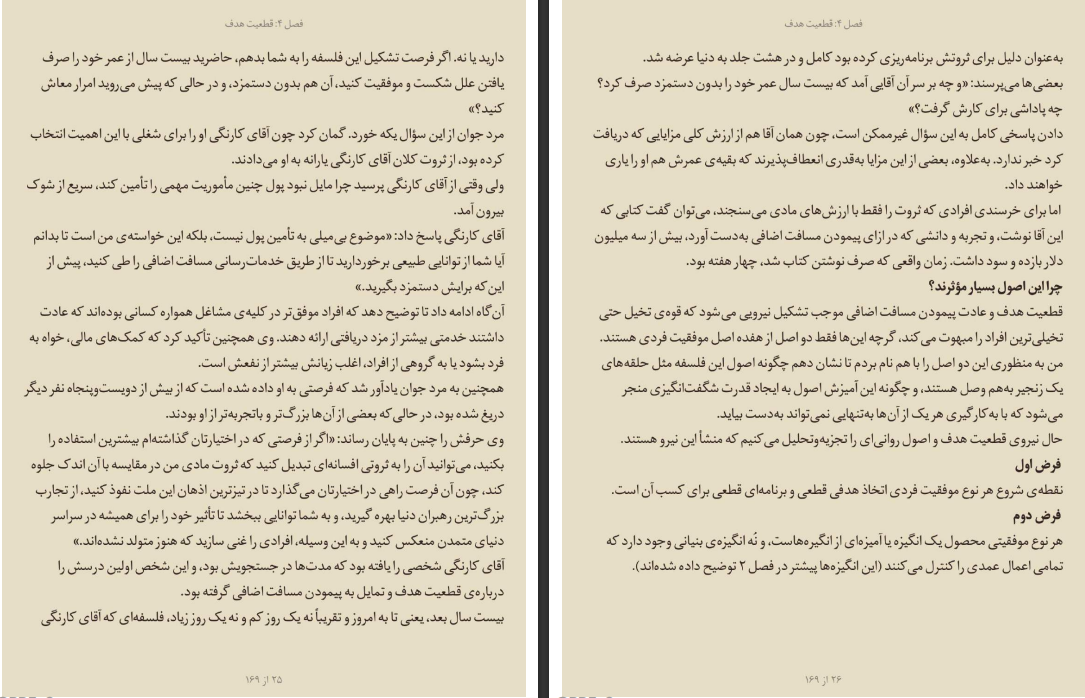 فصل ۴: قطعیت هدف
دارید یا نه. اگر فرصت تشکیل این فلسفه را به شما بدهم، حاضرید بیست سال از عمر خود را صرف
یافتن علل شکست و موفقیت کنید، آن هم بدون دستمزد، و در حالی که پیش می‌روید امرار معاش
کنید؟»
مرد جوان از این سؤال یکه خورد. گمان کرد چون آقای کارنگی او را برای شغلی با این اهمیت انتخاب
کرده بود، از ثروت کلان آقای کارنگی یارانه به او می‌دادند.
ولی وقتی از آقای کارنگی پرسید چرا مایل نبود پول چنین مأموریت مهمی را تأمین کند، سریع از شوک
بیرون آمد.
آقای کارنگی پاسخ داد: «موضوع بی‌میلی به تأمین پول نیست، بلکه این خواسته‌ی من است تا بدانم
آیا شما از توانایی طبیعی برخوردارید تا از طریق خدمات‌رسانی مسافت اضافی را طی کنید، پیش از
این که برایش دستمزد بگیرید.»
آن‌گاه ادامه داد تا توضیح دهد که افراد موفق‌تر در کلیه‌ی مشاغل همواره کسانی بوده‌اند که عادت
داشتند خدمتی بیشتر از مزد دریافتی ارائه دهند. وی همچنین تأکید کرد که کمک‌های مالی، خواه به
فرد بشود یا به گروهی از افراد، اغلب زیانش بیشتر از نفعش است.
همچنین به مرد جوان یادآور شد که فرصتی به او داده شده است که از بیش از دویست‌وپنجاه نفر دیگر
دریغ شده بود، در حالی‌که بعضی از آن‌ها بزرگ‌تر و باتجربه‌تر از او بودند.
وی حرفش را چنین به پایان رساند: «اگر از فرصتی که در اختیارتان گذاشته‌ام بیشترین استفاده را
بکنید، می‌توانید آن را به ثروتی افسانه‌ای تبدیل کنید که ثروت مادی من در مقایسه با آن اندک جلوه
کند، چون آن فرصت راهی در اختیارتان می‌گذارد تا در تیزترین اذهان این ملت نفوذ کنید، از تجارب
بزرگ‌ترین رهبران دنیا بهره گیرید، و به شما توانایی ببخشد تا تأثیر خود را برای همیشه در سراسر
دنیای متمدن منعکس کنید و به این وسیله، افرادی را غنی سازید که هنوز متولد نشده‌اند.»
آقای کارنگی شخصی را یافته بود که مدت‌ها در جستجویش بود، و این شخص اولین درسش را
درباره‌ی قطعیت هدف و تمایل به پیمودن مسافت اضافی گرفته بود.
بیست سال بعد، یعنی تا به امروز و تقریباً نه یک روز کم و نه یک روز زیاد، فلسفه‌ای که آقای کارنگی
۲۵ از ۱۶۹
فصل ۴: قطعیت هدف
به‌عنوان دلیل برای ثروتش برنامه‌ریزی کرده بود کامل و در هشت جلد به دنیا عرضه شد.
بعضی‌ها می‌پرسند: «و چه بر سر آن آقایی آمد که بیست سال عمر خود را بدون دستمزد صرف کرد؟
چه پاداشی برای کارش گرفت؟»
دادن پاسخی کامل به این سؤال غیرممکن است، چون همان آقا هم از ارزش کلی مزایایی که دریافت
کرد خبر ندارد. به‌علاوه، بعضی از این مزایا به‌قدری انعطاف‌پذیرند که بقیه‌ی عمرش هم او را یاری
خواهند داد.
اما برای خرسندی افرادی که ثروت را فقط با ارزش‌های مادی می‌سنجند، می‌توان گفت کتابی که
این آقا نوشت، و تجربه و دانشی که در ازای پیمودن مسافت اضافی به‌دست آورد، بیش از سه میلیون
دلار بازده و سود داشت. زمان واقعی که صرف نوشتن کتاب شد، چهار هفته بود.
چرا این اصول بسیار مؤثرند؟
قطعیت هدف و عادت پیمودن مسافت اضافی موجب تشکیل نیرویی می‌شود که قوه‌ی تخیل حتی
تخیلی‌ترین افراد را مبهوت می‌کند، گرچه این‌ها فقط دو اصل از هفده اصل موفقیت فردی هستند.
من به منظوری این دو اصل را با هم نام بردم تا نشان دهم چگونه اصول این فلسفه مثل حلقه‌های
یک زنجیر به‌هم وصل هستند، و چگونه این آمیزش اصول به ایجاد قدرت شگفت‌انگیزی منجر
می‌شود که با به‌کارگیری هر یک از آن‌ها به‌تنهایی نمی‌تواند به‌دست بیاید.
حال نیروی قطعیت هدف و اصول روانی‌ای را تجزیه‌وتحلیل می‌کنیم که منشأ این نیرو هستند.
فرض اول
نقطه‌ی شروع هر نوع موفقیت فردی اتخاذ هدفی قطعی و برنامه‌ای قطعی برای کسب آن است.
فرض دوم
هر نوع موفقیتی محصول یک انگیزه یا آمیزه‌ای از انگیزه‌هاست، و نُه انگیزه‌ی بنیانی وجود دارد که
تمامی اعمال عمدی را کنترل می‌کنند (این انگیزه‌ها پیشتر در فصل ۲ توضیح داده شده‌اند).
۲۶ از ۱۶۹